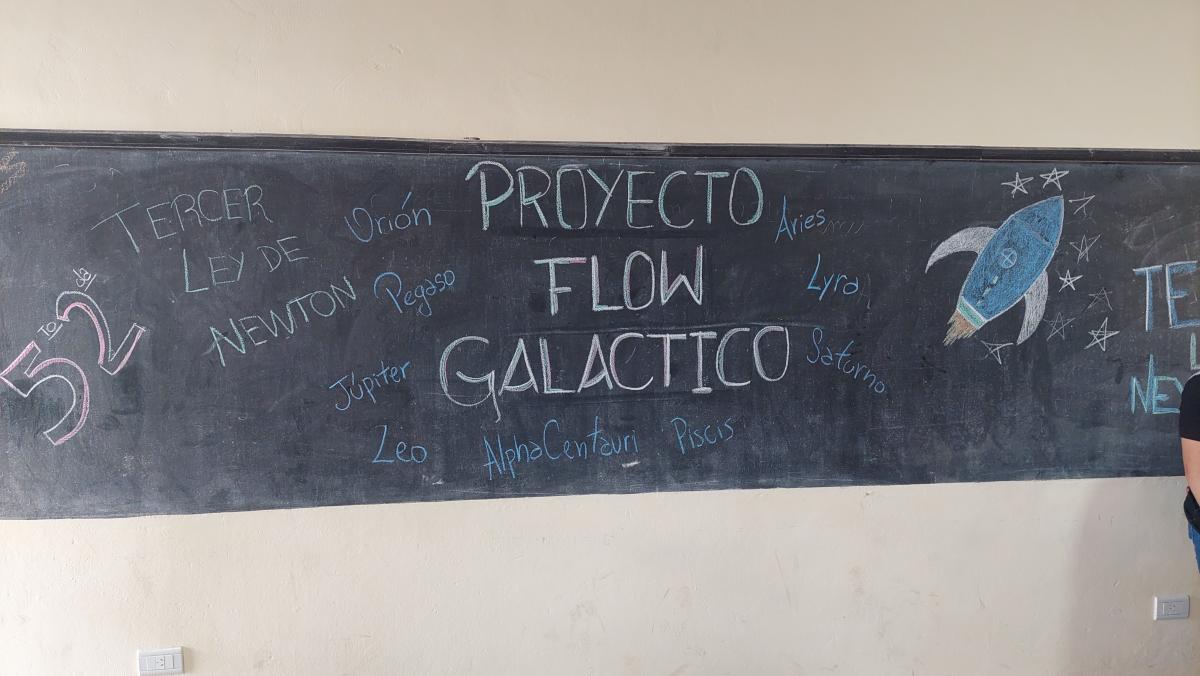 5to 2da
TERCER
LEY DE
NEWTON
Orión
Pegaso
Júpiter
Leo
PROYECTO
FLOW
GALACTICO
AlphaCentauri
Piscis
Aries
Lyra
Saturno
TE
L
NE